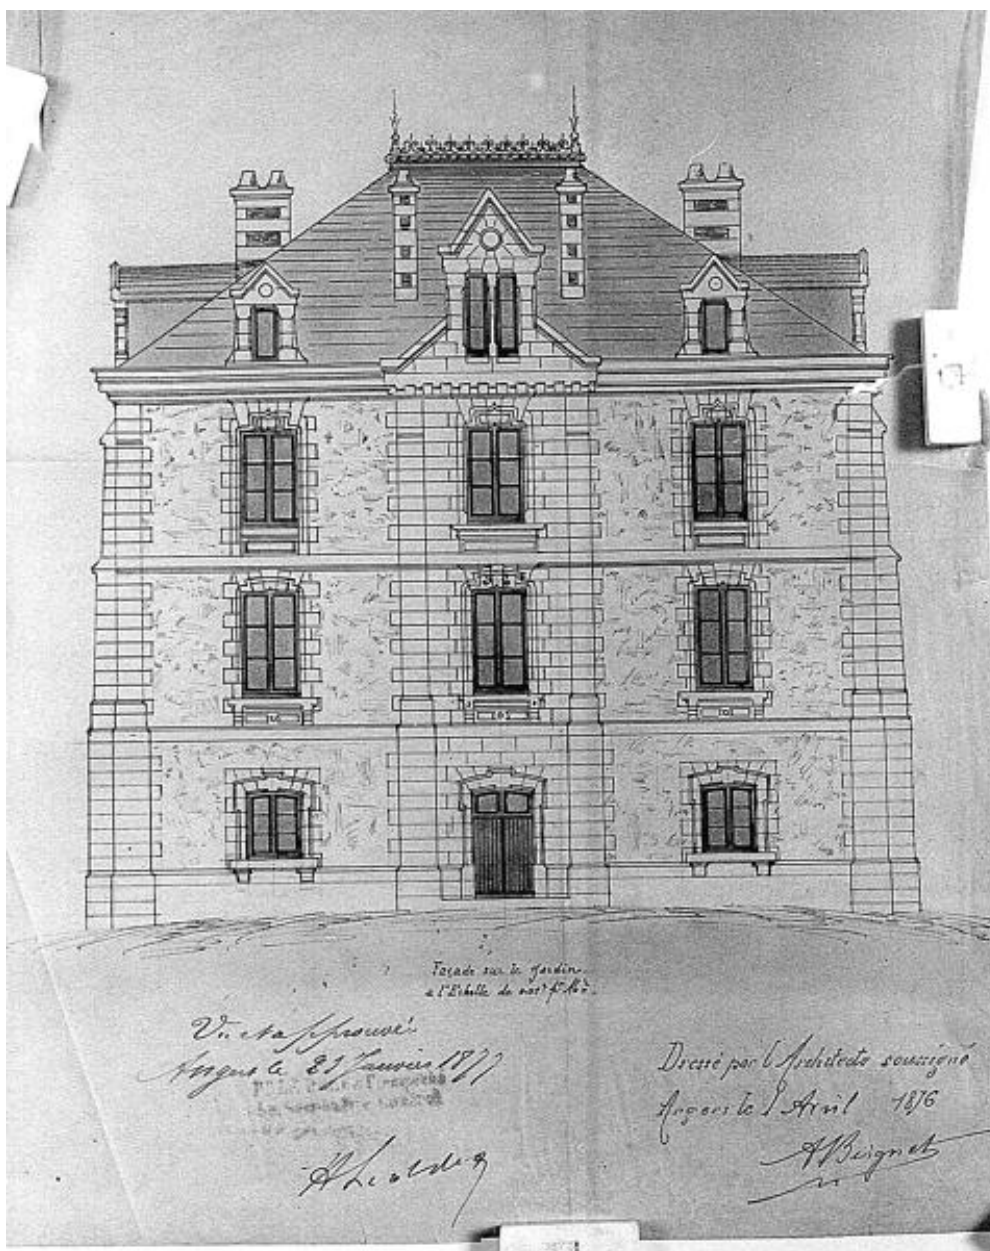 Façade sur le Jardin.
à l'Echelle de
Vu et approuvé
Angers le 23 Janvier 1877
Dressé par l'Architecte soussigné
Angers le 1 Avril 1876
ABeignet